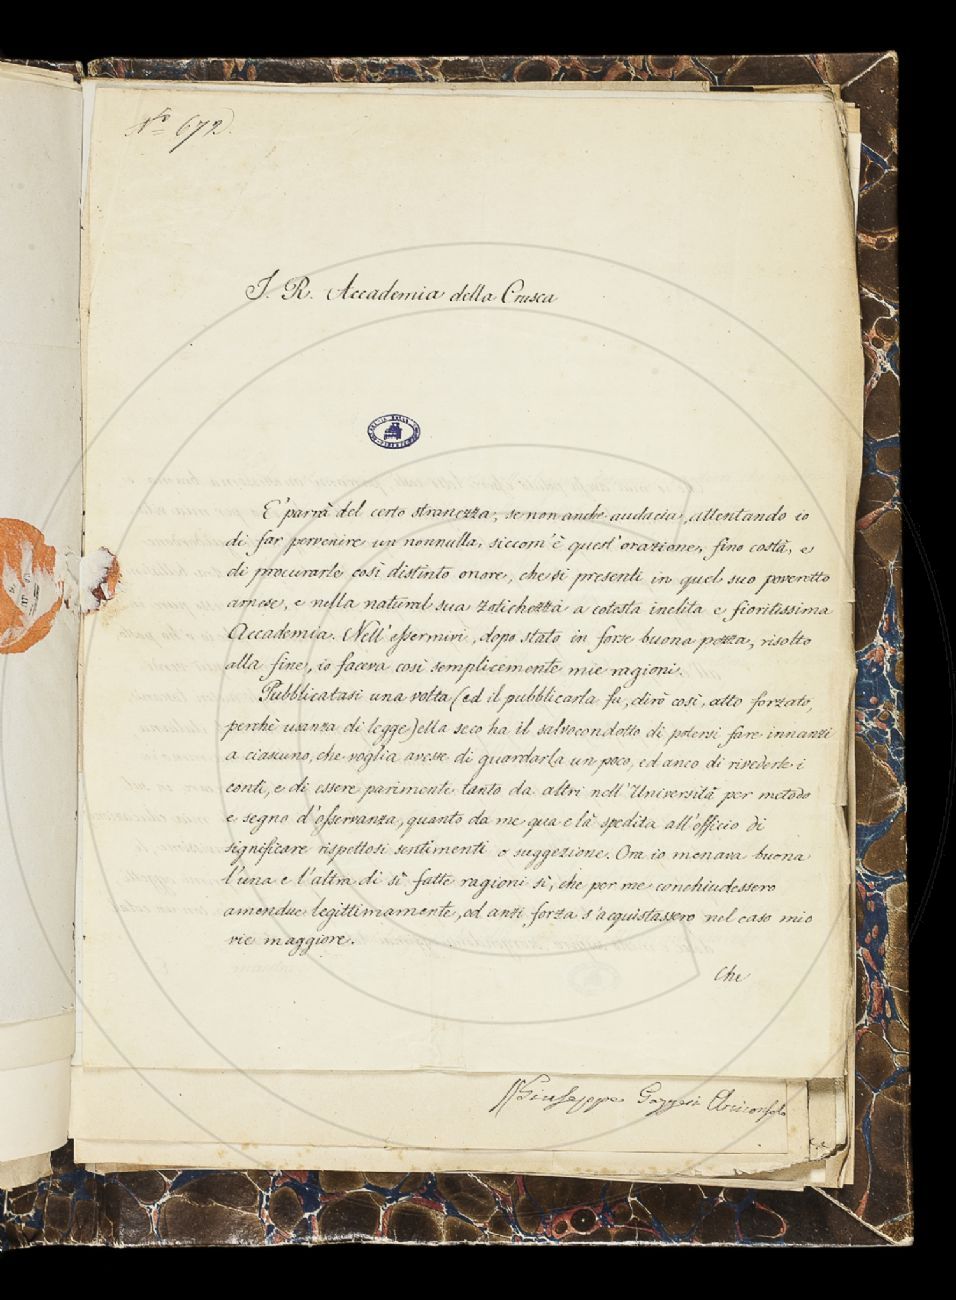 N.º 672.
I. R. Accademia della Crusca
E' parrà del certo stranezza, se non anche audacia, attentando io
di far pervenire un nonnulla, siccom'è quest'orazione, fino costà, e
di procurarle così distinto onore, che si presenti in quel suo poveretto
arnese, e nella natural sua zotichezza a cotesta inclita e fioritissima
Accademia. Nell'essermivi, dopo stato in forse buona pezza, risolto
alla fine, io faceva così semplicemente mie ragioni.
Pubblicatasi una volta (ed il pubblicarla fu, dirò così, atto forzato,
perchè usanza di legge) ella seco ha il salvocondotto di potersi fare innanzi
a ciascuno, che voglia avesse di guardarla un poco, ed anco di rivederle i
conti, e di essere parimente tanto da altri nell'Università per metodo
e segno d'osservanza, quanto da me qua e là spedita all'officio di
significare rispettosi sentimenti o suggezione. Ora io menava buona
l'una e l'altra di sì fatte ragioni sì, che per me conchiudessero
amendue legittimamente, ed anzi forza s'acquistassero nel caso mio
vie maggiore.
Che
Giuseppe Arciconsolo